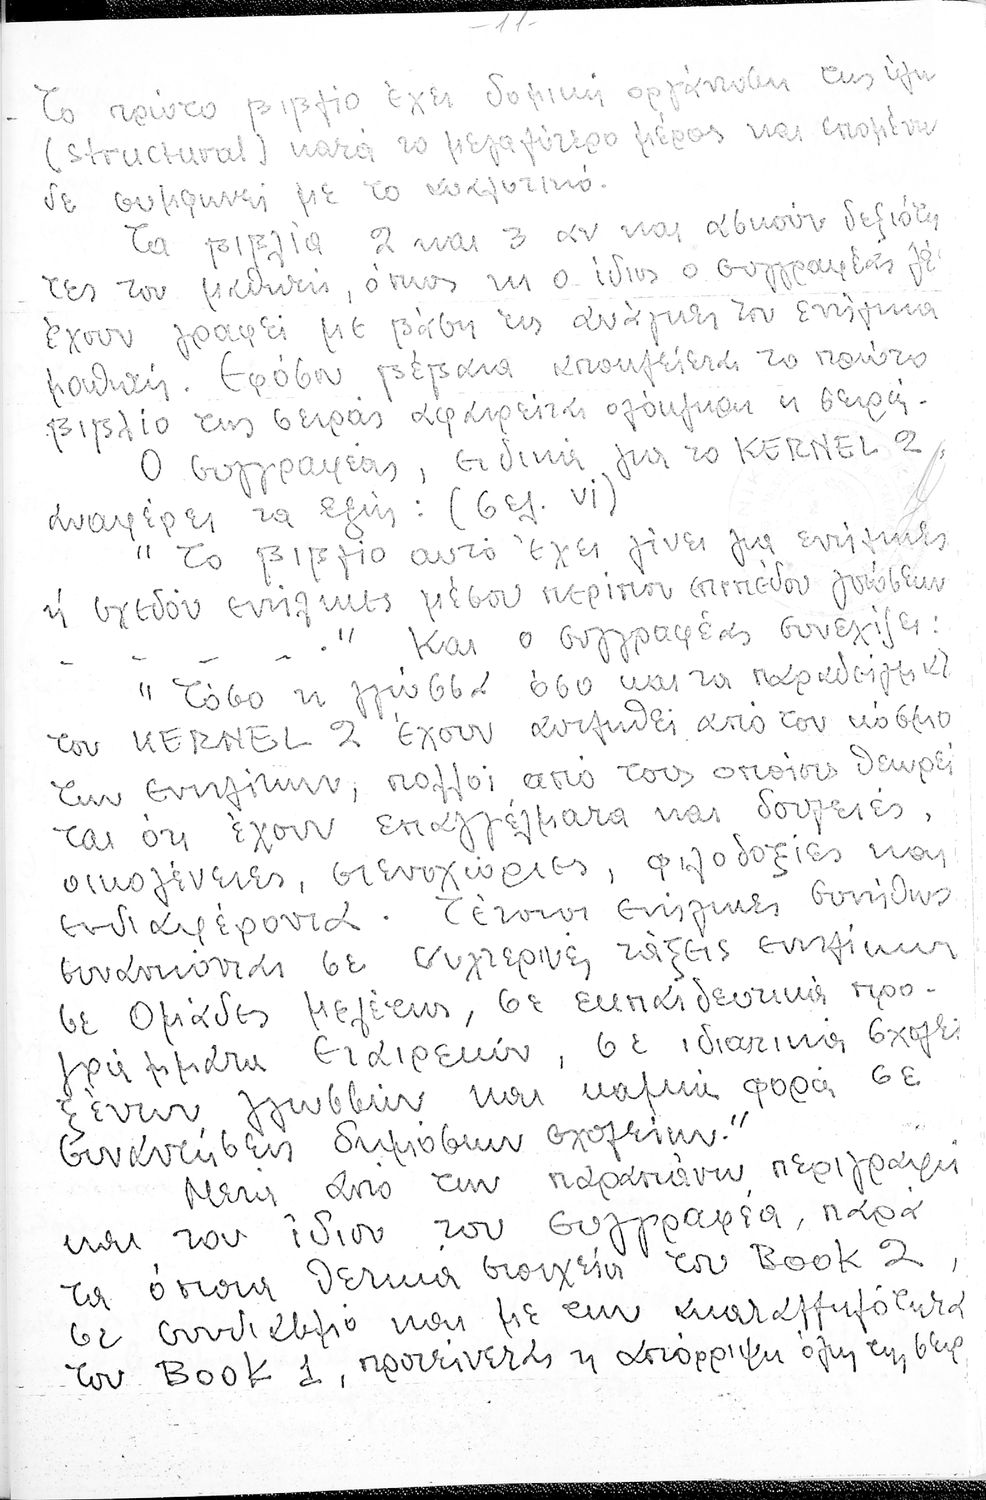 -11-
Το πρώτο βιβλίο έχει δομική οργάνωση της ύλη
(structural) κατά το μεγαλύτερο μέρος και επομένω
δε συμφωνεί με το αναλυτικό.
Τα βιβλία 2 και 3 αν και ασκούν δεξιότη
τες του μαθητή, όπως κι ο ίδιος ο συγγραφέας λέ
έχουν γραφεί με βάση τις ανάγκες του ενήλικα
μαθητή. Εφόσον βέβαια αποκλείεται το πρώτο
βιβλίο της σειράς αφαιρείται ολόκληρη η σειρά.
Ο συγγραφέας, ειδικά για το KERNEL 2,
αναφέρει τα εξής: (σελ. vi)
" Το βιβλίο αυτό έχει γίνει για ενήλικες
ή σχεδόν ενήλικες μέσου περίπου επιπέδου γνώσεων
- - - - ." Και ο συγγραφέας συνεχίζει:
" Τόσο η γλώσσα όσο και τα παραδείγματ
του KERNEL 2 έχουν αντληθεί από τον κόσμο
των ενηλίκων, πολλοί από τους οποίους θεωρεί
ται ότι έχουν επαγγέλματα και δουλειές,
οικογένειες, στενοχώριες, φιλοδοξίες και
ενδιαφέροντα. Τέτοιοι ενήλικες συνήθως
συναντώνται σε νυχτερινές τάξεις ενηλίκων
σε Ομάδες μελέτης, σε εκπαιδευτικά προ-
γράμματα Εταιρειών, σε ιδιωτικά σχολεί
ξένων γλωσσών και καμιά φορά σε
συναντήσεις δημόσιων σχολείων."
Μετά από την παραπάνω περιγραφή
και του ίδιου του συγγραφέα, παρά
τα όποια θετικά στοιχεία του BOOK 2,
σε συνδιασμό και με την ακαταλληλότητα
του BOOK 1, προτείνεται η απόρριψη όλης της σειρ